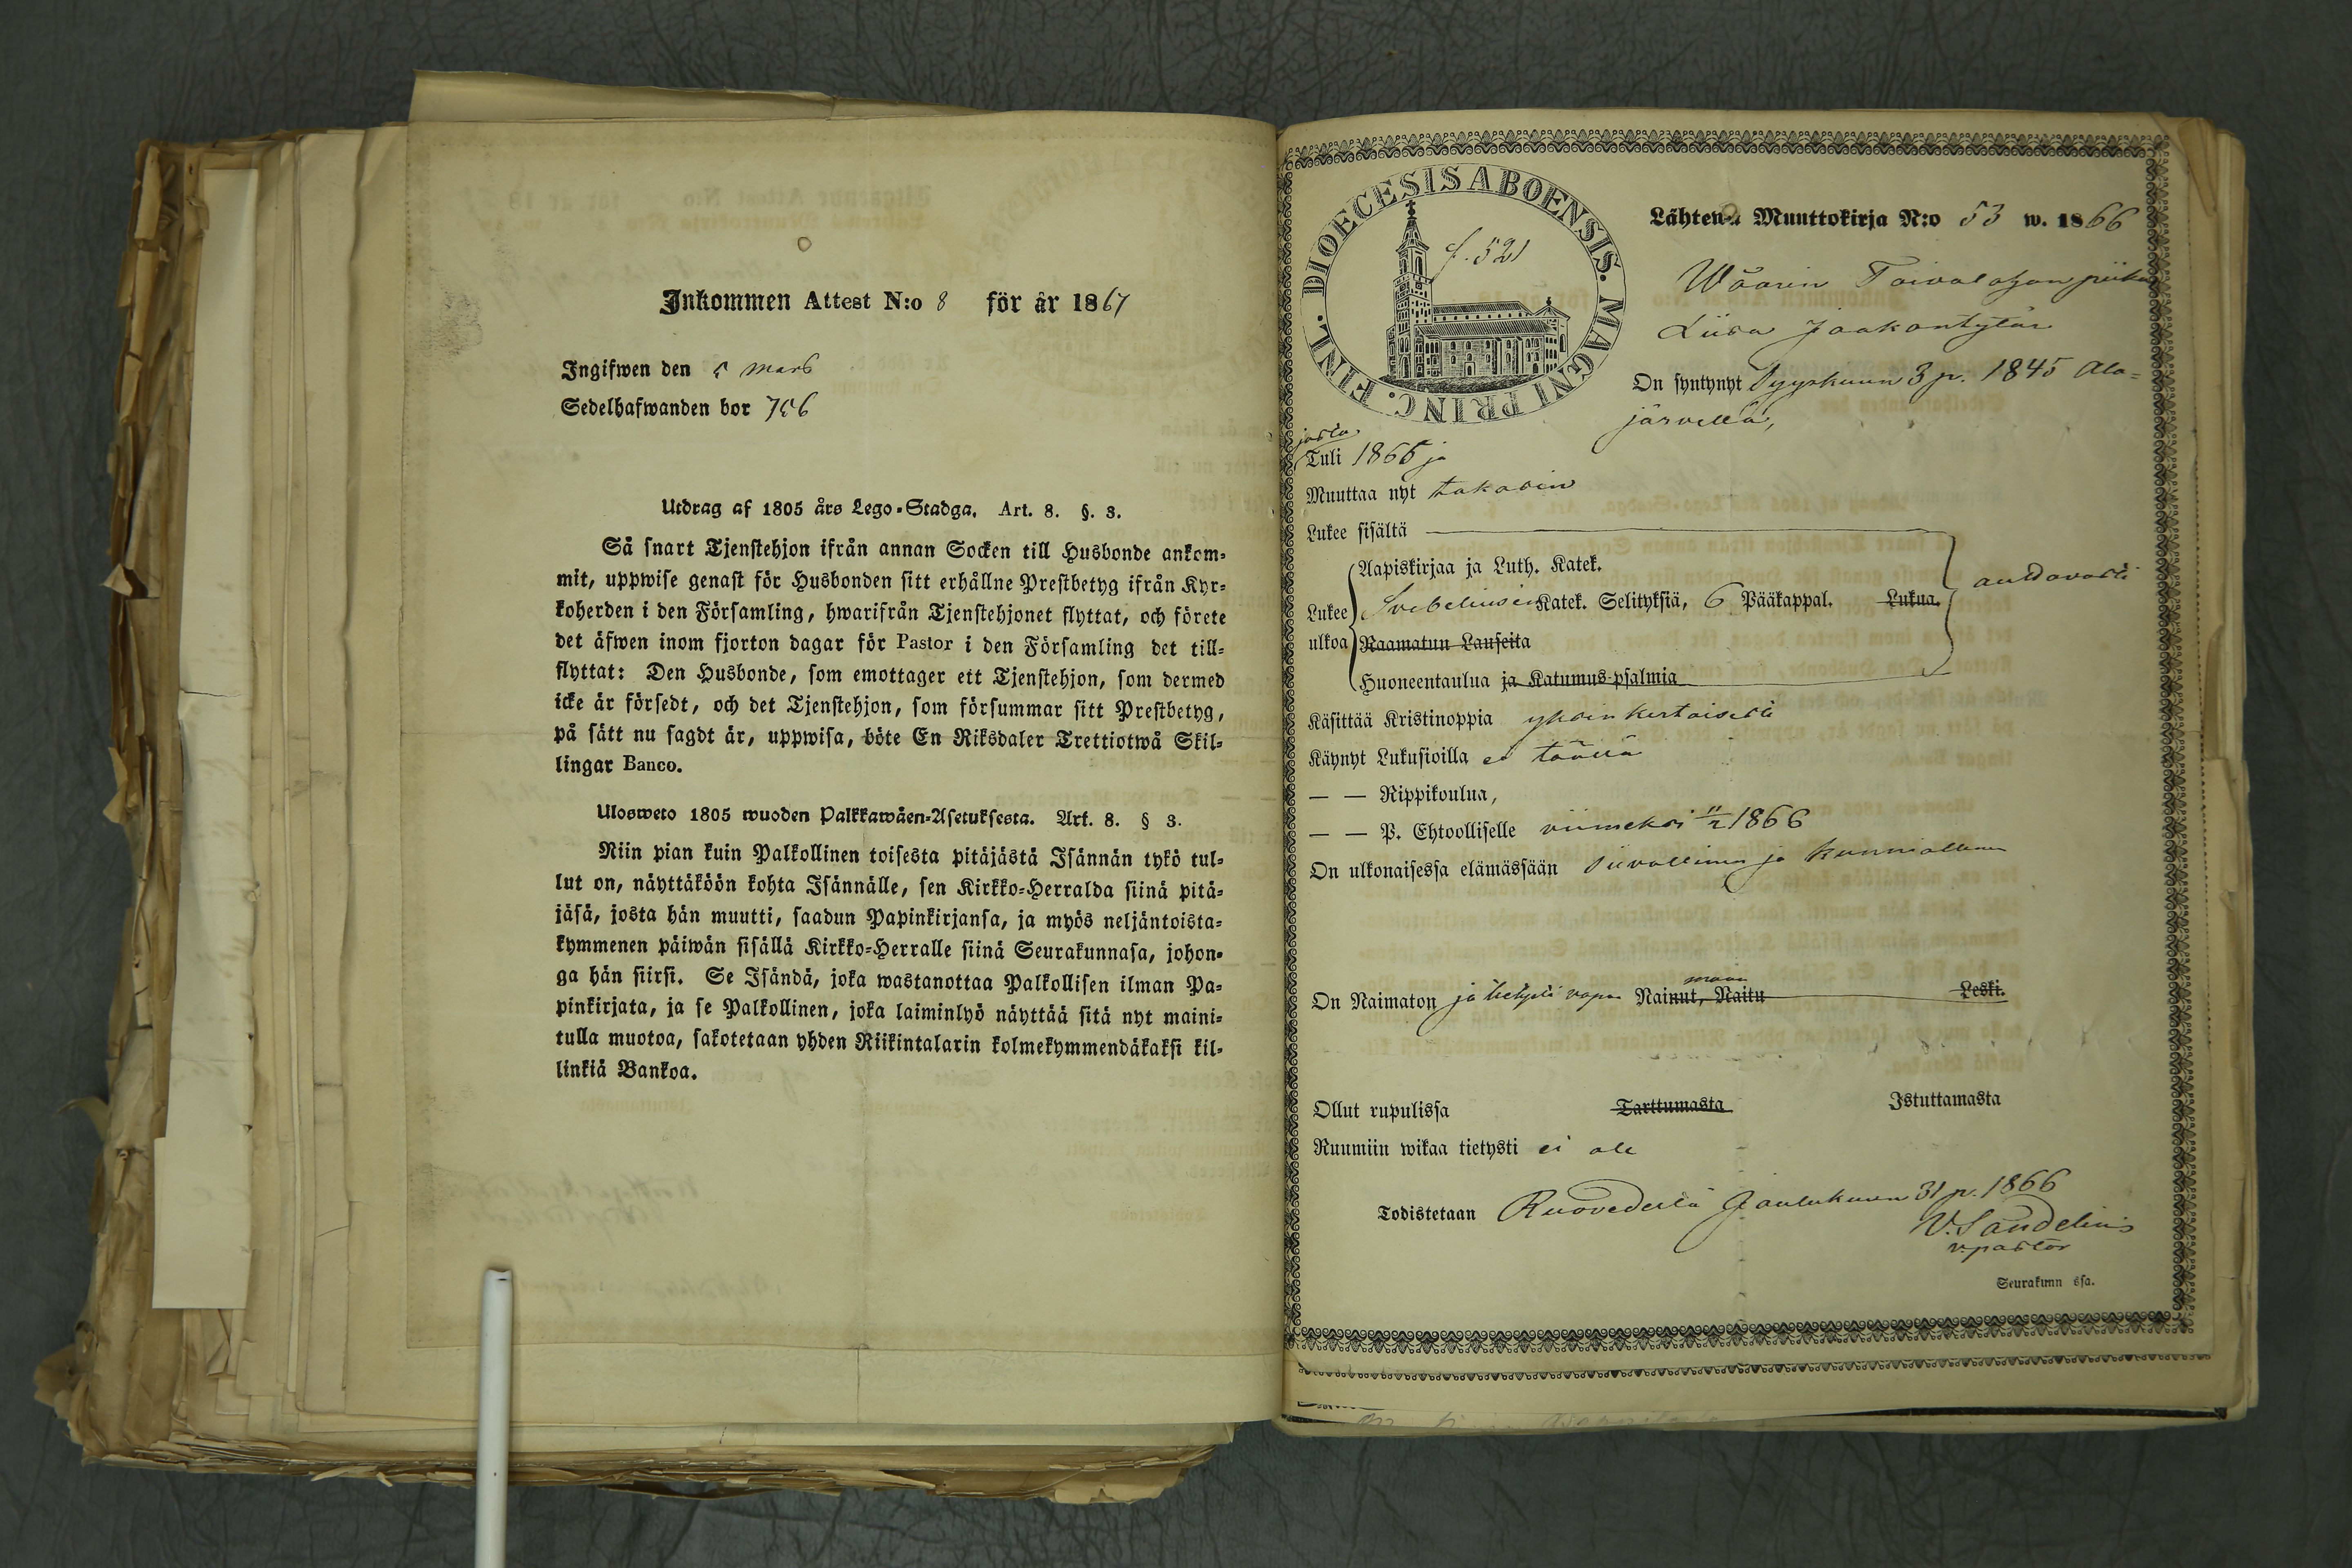 Inkommen Attest N:o 8 för år 1867
Ingifwen den 5 mars
Sedelhafwanden bor
Utdrag af 1805 års Lego-Stadga. Art. 8. §. 3.
Så snart Tjenstehjon ifrån annan Socken till Husbonde ankom-
mit, uppwise genast för Husbonden sitt erhållne Prestbetyg ifrån Kyr-
koherden i den Församling, hwarifrån Tjenstehjonet flyttat, och förete
det äfwen inom fjorton dagar för Pastor i den Församling det till-
flyttat: Den Husbonde, som emottager ett Tjenstehjon, som dermed
icke är försedt, och det Tjenstehjon, som försummar sitt Prestbetyg,
på sätt nu sagdt är, uppwisa, böte En Riksdaler Trettiotwå Skil-
lingar Banco.
Ulosweto 1805 wuoden Palkkawäen-Asetuksesta. Art. 8. § 3.
Niin pian kuin Palkollinen toisesta pitäjästä Isännän tykö tul-
lut on, näyttäköön kohta Isännälle, sen Kirkko-Herralda siinä pitä-
jäsä, josta hän muutti, saadun Papinkirjansa, ja myös neljäntoista-
kymmenen päiwän sisällä Kirkko-Herralle siinä Seurakunnasa, johon-
ga hän siirsi. Se Isändä, joka wastanottaa Palkollisen ilman Pa-
pinkirjata, ja se Palkollinen, joka laiminlyö näyttää sitä nyt maini-
tulla muotoa, sakotetaan yhden Riikintalarin kolmekymmendäkaksi kil-
linkiä Bankoa.
DIOECESIS ABOENSIS. MAGNI PRINC. FINL.
f. 521
Lähtenyt Muuttokirja N:o 53 w. 1866
Wäärin Toivolahan piika
Liisa Jaakontytär
On syntynyt Syyskuun 3 p. 1845 Ala-
järvellä,
josta
Tuli 1865 ja
Muuttaa nyt takasin
Lukee sisältä
Aapiskirjaa ja Luth. Katek.
Lukee Svebeliusen Katek. Selityksiä, 6 Pääkappal. Lukua. auttavasti
ulkoa Raamatun Lauseita
Huoneentaulua ja Katumus-psalmia
Käsittää Kristinoppia yksinkertaisesti
Käynyt Lukusioilla ei täällä
— — Rippikoulua,
— — P. Ehtoolliselle viimeksi 11/2 1866
On ulkonaisessa elämässään siivollinen ja kunniallinen
On Naimaton ja tietysti vapa Nainut, Naitu Leski.
Ollut rupulissa Tarttumasta Istuttamasta
Ruumiin wikaa tietysti ei ole
Todistetaan Ruovedellä Joulukuun 31 p. 1866
V. Sandelius
v. pastor
Seurakunn ssa.